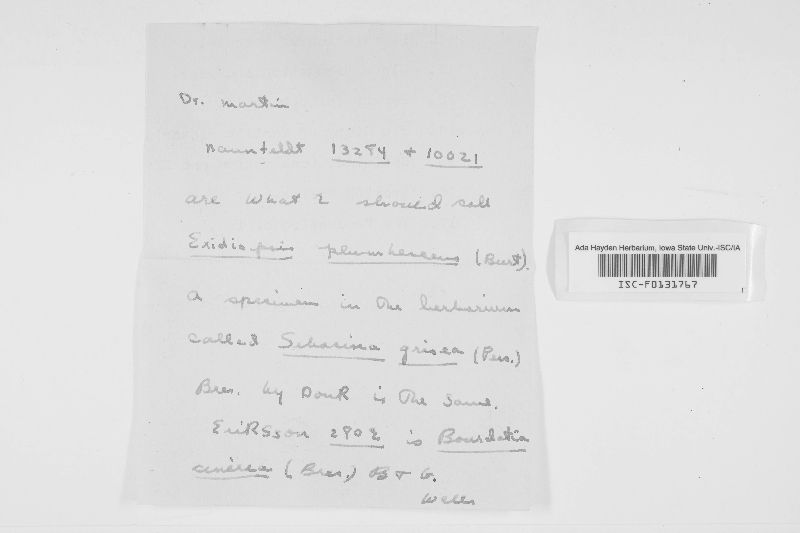 Dr. Martin
Nannfeldt 13284 + 10021
are what I should call
Exidiopsis plumbescens (Burt).
A specimen in the herbarium
called Sebacina grisea (Pers.)
Bres. by Donk is the same.
Eriksson 2902 is Bourdotia
cinerea (Bres.) B + G.
Wells
Ada Hayden Herbarium, Iowa State Univ.-ISC/IA
ISC-F0131767